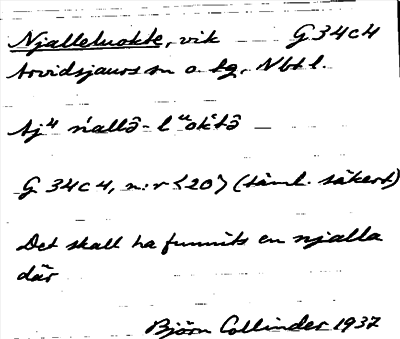 Njalleluokte, vik G 34c4
Arvidsjaurs sn o. tg, Nbt l.
Aj⁴ ńallə̑-lᵘoḱtə̑ —
G 34c4, n:r <20> (täml. säkert)
Det skall ha funnits en njalla
där
Björn Collinder 1937